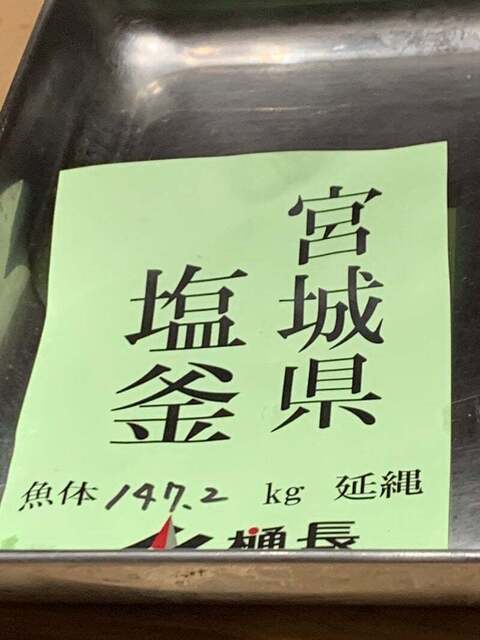 宮城県
塩釜
魚体 147.2 kg 延縄
樋長